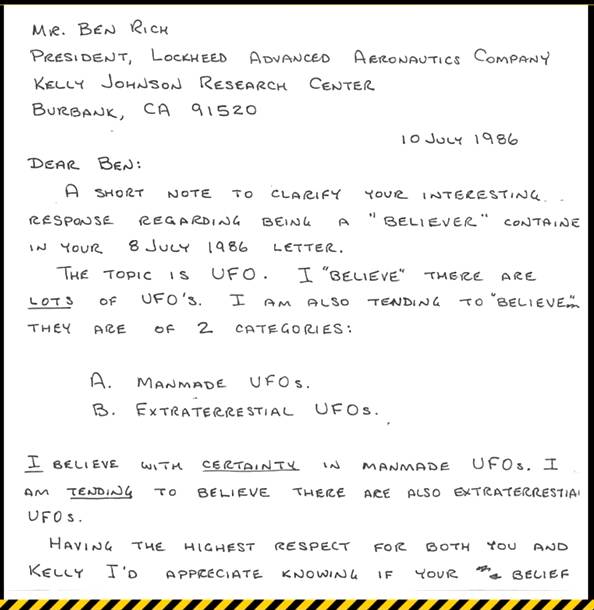 MR. BEN RICH
PRESIDENT, LOCKHEED ADVANCED AERONAUTICS COMPANY
KELLY JOHNSON RESEARCH CENTER
BURBANK, CA 91520
10 JULY 1986
DEAR BEN:
A SHORT NOTE TO CLARIFY YOUR INTERESTING
RESPONSE REGARDING BEING A "BELIEVER" CONTAINE
IN YOUR 8 JULY 1986 LETTER.
THE TOPIC IS UFO. I "BELIEVE" THERE ARE
LOTS OF UFO'S. I AM ALSO TENDING TO "BELIEVE"
THEY ARE OF 2 CATEGORIES:
A. MANMADE UFOs.
B. EXTRATERRESTIAL UFOs.
I BELIEVE WITH CERTAINTY IN MANMADE UFOs. I
AM TENDING TO BELIEVE THERE ARE ALSO EXTRATERRESTIA
UFOs.
HAVING THE HIGHEST RESPECT FOR BOTH YOU AND
KELLY I'D APPRECIATE KNOWING IF YOUR BELIEF